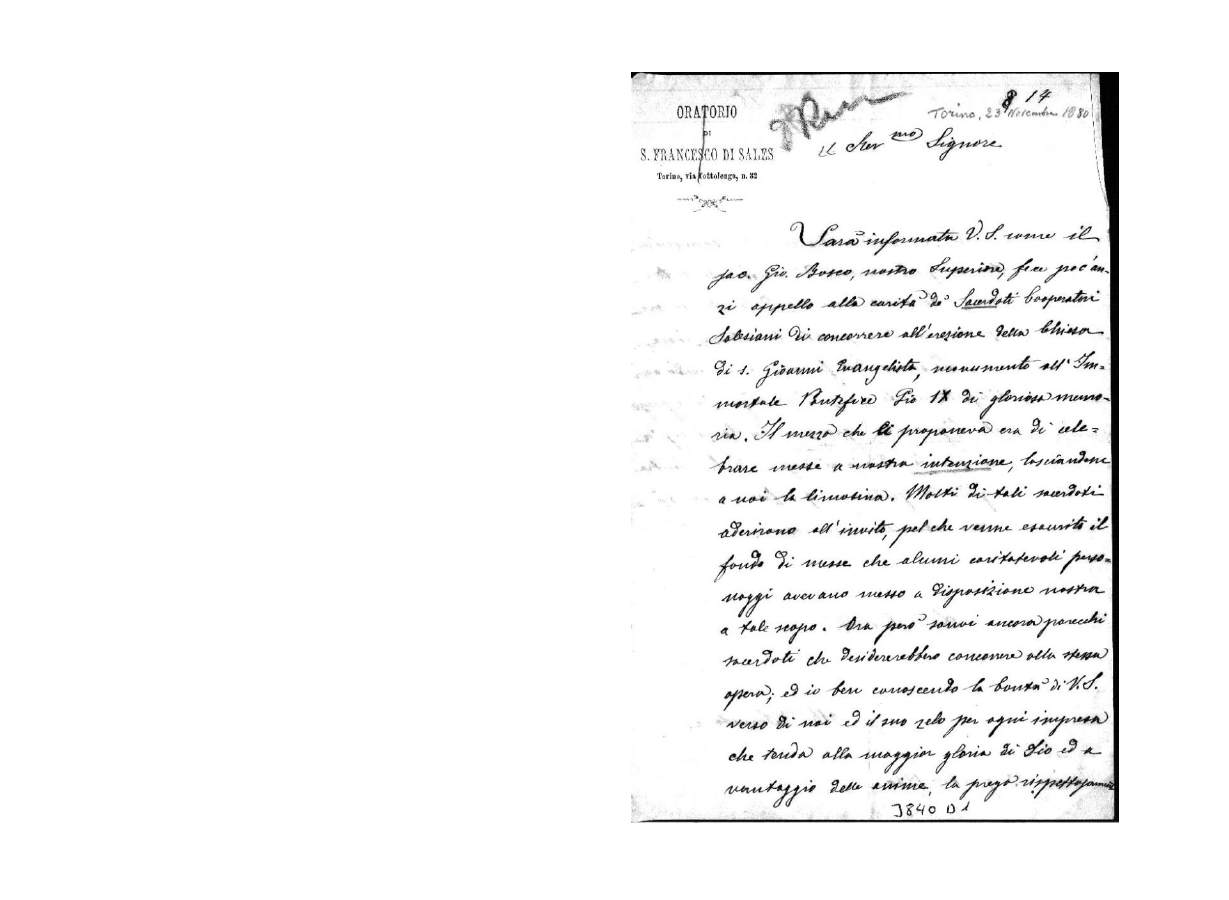 ORATORIO
DI
S. FRANCESCO DI SALES
Torino, via Cottolengo, n. 32
8 14
Torino, 23 Novembre 1880
Rev mo Signore
Sarà informata V. S. come il
sac. Gio. Bosco, nostro Superiore, fece poc'an-
zi appello alla carità de' Sacerdoti Cooperatori
Salesiani di concorrere all'erezione della Chiesa
di S. Giovanni Evangelista, monumento all'Im=
mortale Pontefice Pio IX di gloriosa memo-
ria. Il mezzo che li proponeva era di cele=
brare messe a nostra intenzione, lasciandone
a noi la limosina. Molti di tali sacerdoti
aderirono all'invito, pel che venne esaurito il
fondo di messe che alcuni caritatevoli perso=
naggi avevano messo a disposizione nostra
a tale scopo. Ora però sonvi ancora parecchi
sacerdoti che desidererebbero concorrere alla stessa
opera; ed io ben conoscendo la bontà di V. S.
verso di noi ed il suo zelo per ogni impresa
che tenda alla maggior gloria di Dio ed a
vantaggio delle anime, la prego rispettosamente
3840 D 1